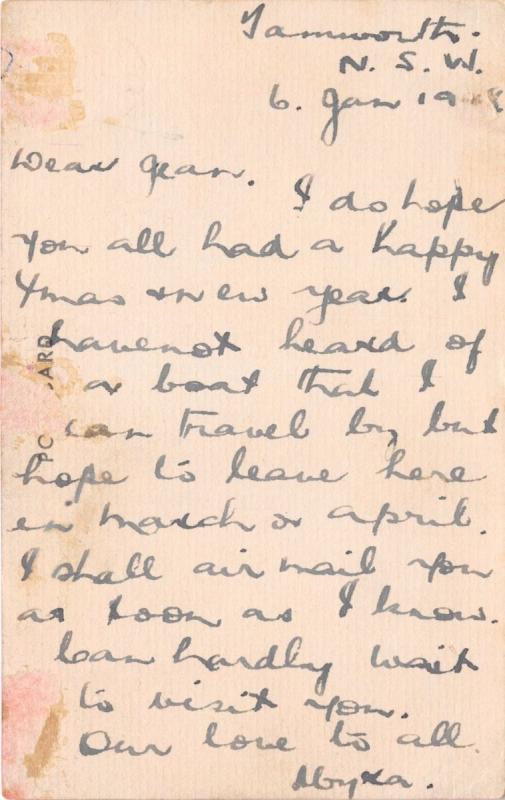 Tamworth.
N. S. W.
6. Jan 19
Dear Jean.
I do hope
you all had a happy
Xmas & new year. I
have not heard of
a boat that I
can travel by but
hope to leave here
in March or April.
I shall air mail you
as soon as I know.
Can hardly wait
to visit you.
Our love to all.
C ARD